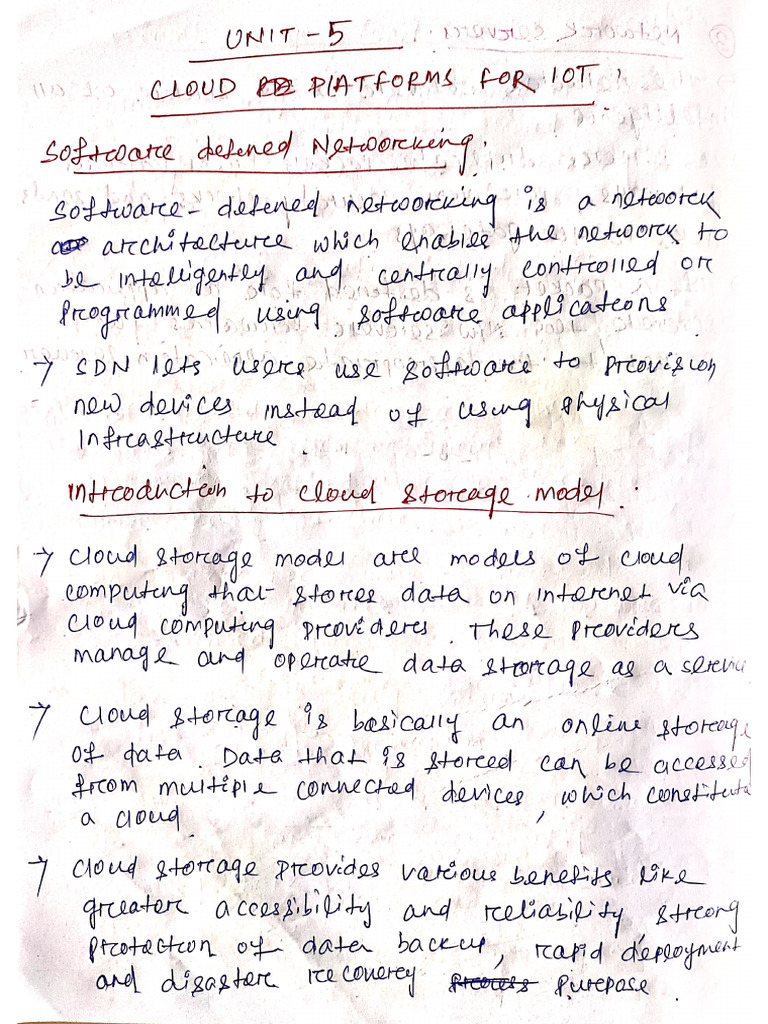 UNIT - 5
CLOUD PLATFORMS FOR IOT
Software defened Networking.
Software - defened networking is a network
architecture, which enables the network to
be intelligently and centrally controlled or
programmed using software applications
→ SDN lets users use software to provision
new devices instead of using physical
Infrastructure.
Introduction to cloud storage model :
→ Cloud storage model are models of cloud
computing that stores data on internet via
cloud computing providers. These providers
manage and operate data storage as a service
→ Cloud storage is basically an online storage
of data. Data that is stored can be accessed
from multiple connected devices, which constitute
a cloud.
→ Cloud storage provides various benefits like
greater accessibility and reliability, strong
protection of data backup, rapid deployment
and disaster recovery process purpose.